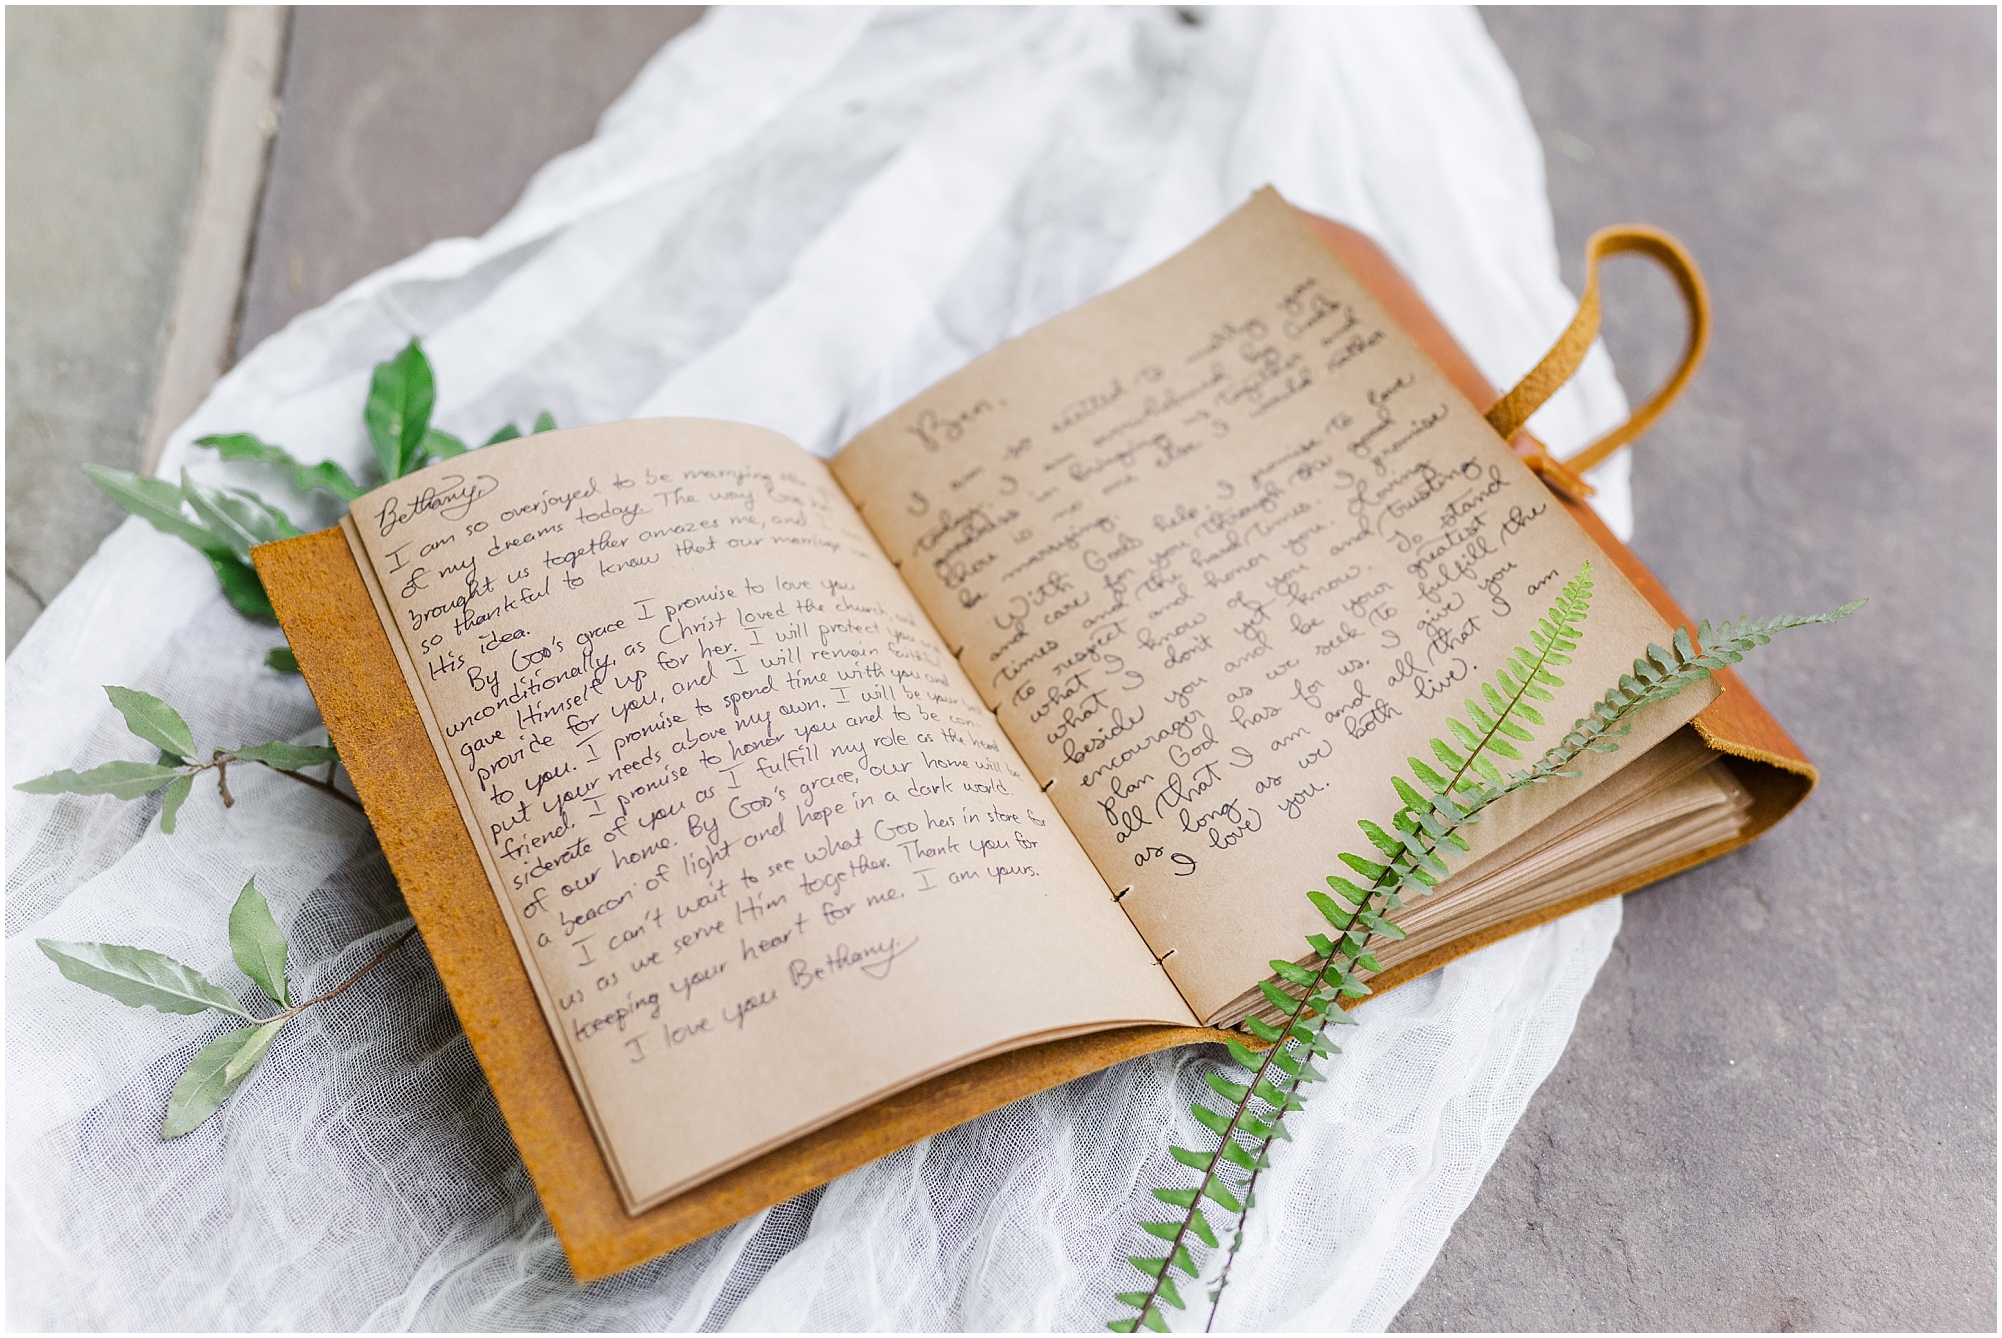 Bethany,
I am so overjoyed to be marrying the
of my dreams today. The way God
brought us together amazes me, and
so thankful to know that our marriage
His idea.
By God's grace I promise to love you
unconditionally, as Christ loved the church, and
gave Himself up for her. I will protect you and
provide for you, and I will remain faithful
to you. I promise to spend time with you and
put your needs above my own. I will be your best
friend. I promise to honor you and to be con-
siderate of you as I fulfill my role as the head
of our home. By God's grace, our home will be
a beacon of light and hope in a dark world.
I can't wait to see what God has in store for
us as we serve Him together. Thank you for
keeping your heart for me. I am yours.
I love you Bethany.
Ben,
I am so excited to marry you
today. I am overwhelmed by God's
goodness in bringing us together and
there is no one else I would rather
be marrying.
With God's help, I promise to love
and care for you through the good
times and the hard times. I promise
to respect and honor you. Loving
what I know of you and trusting
what I don't yet know. To stand
beside you and be your greatest
encourager as we seek to fulfill the
plan God has for us. I give you
all that I am and all that I am
as long as we both live.
I love you.